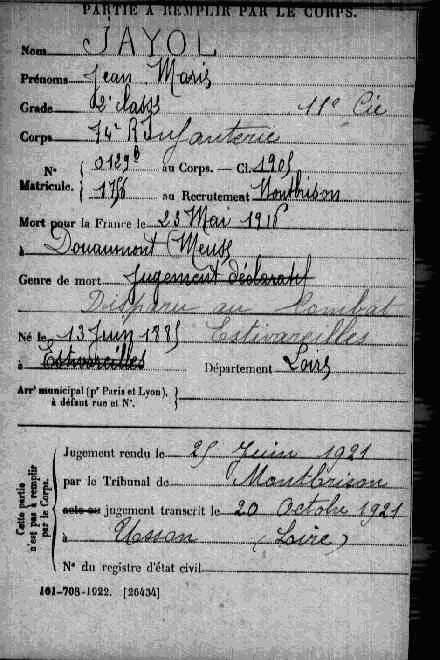 PARTIE À REMPLIR PAR LE CORPS.
Nom JAYOL
Prénoms Jean Marie
Grade 2e classe 11e Cie
Corps 74e R Infanterie
N° Matricule. 0129b au Corps. — Cl. 1905
au Recrutement Montbrison
Mort pour la France le 23 Mai 1916
à Douaumont (Meuse
Genre de mort Jugement déclaratif
Disparu au Combat
Né le 13 Juin 1885 Estivareilles
à Estivareilles Département Loire
Arrt municipal (pr Paris et Lyon), à défaut rue et N°.
Cette partie n'est pas à remplir par le Corps.
Jugement rendu le 25 Juin 1921
par le Tribunal de Montbrison
acte ou jugement transcrit le 20 Octobre 1921
à Usson (Loire)
N° du registre d'état civil
101-708-1922. [26434]